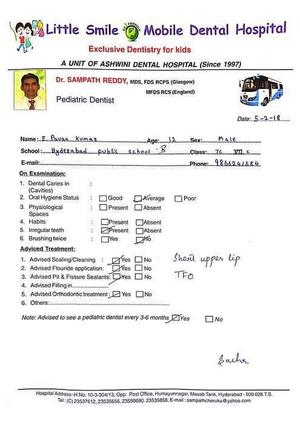 Little Smile Mobile Dental Hospital
Exclusive Dentistry for kids
A UNIT OF ASHWINI DENTAL HOSPITAL (Since 1997)
Dr. SAMPATH REDDY, MDS, FDS RCPS (Glasgow)
MFDS RCS (England)
Pediatric Dentist
Date: 5-2-18
Name: E. Pavan Kumar Age: 12 Sex: Male
School: Hyderabad public school - B Class: 7C
E-mail: Phone:
On Examination:
1. Dental Caries in :
(Cavities)
2. Oral Hygiene Status : Good Average Poor
3. Physiological : Present Absent
Spaces
4. Habits : Present Absent
5. Irregular teeth : Present Absent
6. Brushing twice : Yes No
Adviced Treatment:
1. Advised Scaling/Cleaning : Yes No Short upper lip
2. Advised Flouride application: Yes No TFO
3. Advised Pit & Fissure Sealants: Yes No
4. Advised Filling in
5. Advised Orthodontic treatment : Yes No
6. Others:
Note: Advised to see a pediatric dentist every 3-6 months Yes No
Hospital Address: H.No. 10-3-304/13, Opp: Post Office, Humayunnagar, Masab Tank, Hyderabad - 500 028.T.S.
Tel: (C) 23537612, 23535656, 23590690, 23535858. E-mail : sampathcheruku@yahoo.com